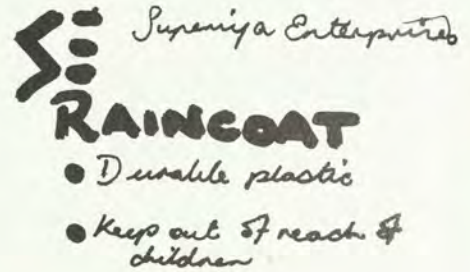 SE Superiya Enterprises
RAINCOAT
• Durable plastic
• Keep out of reach of
children